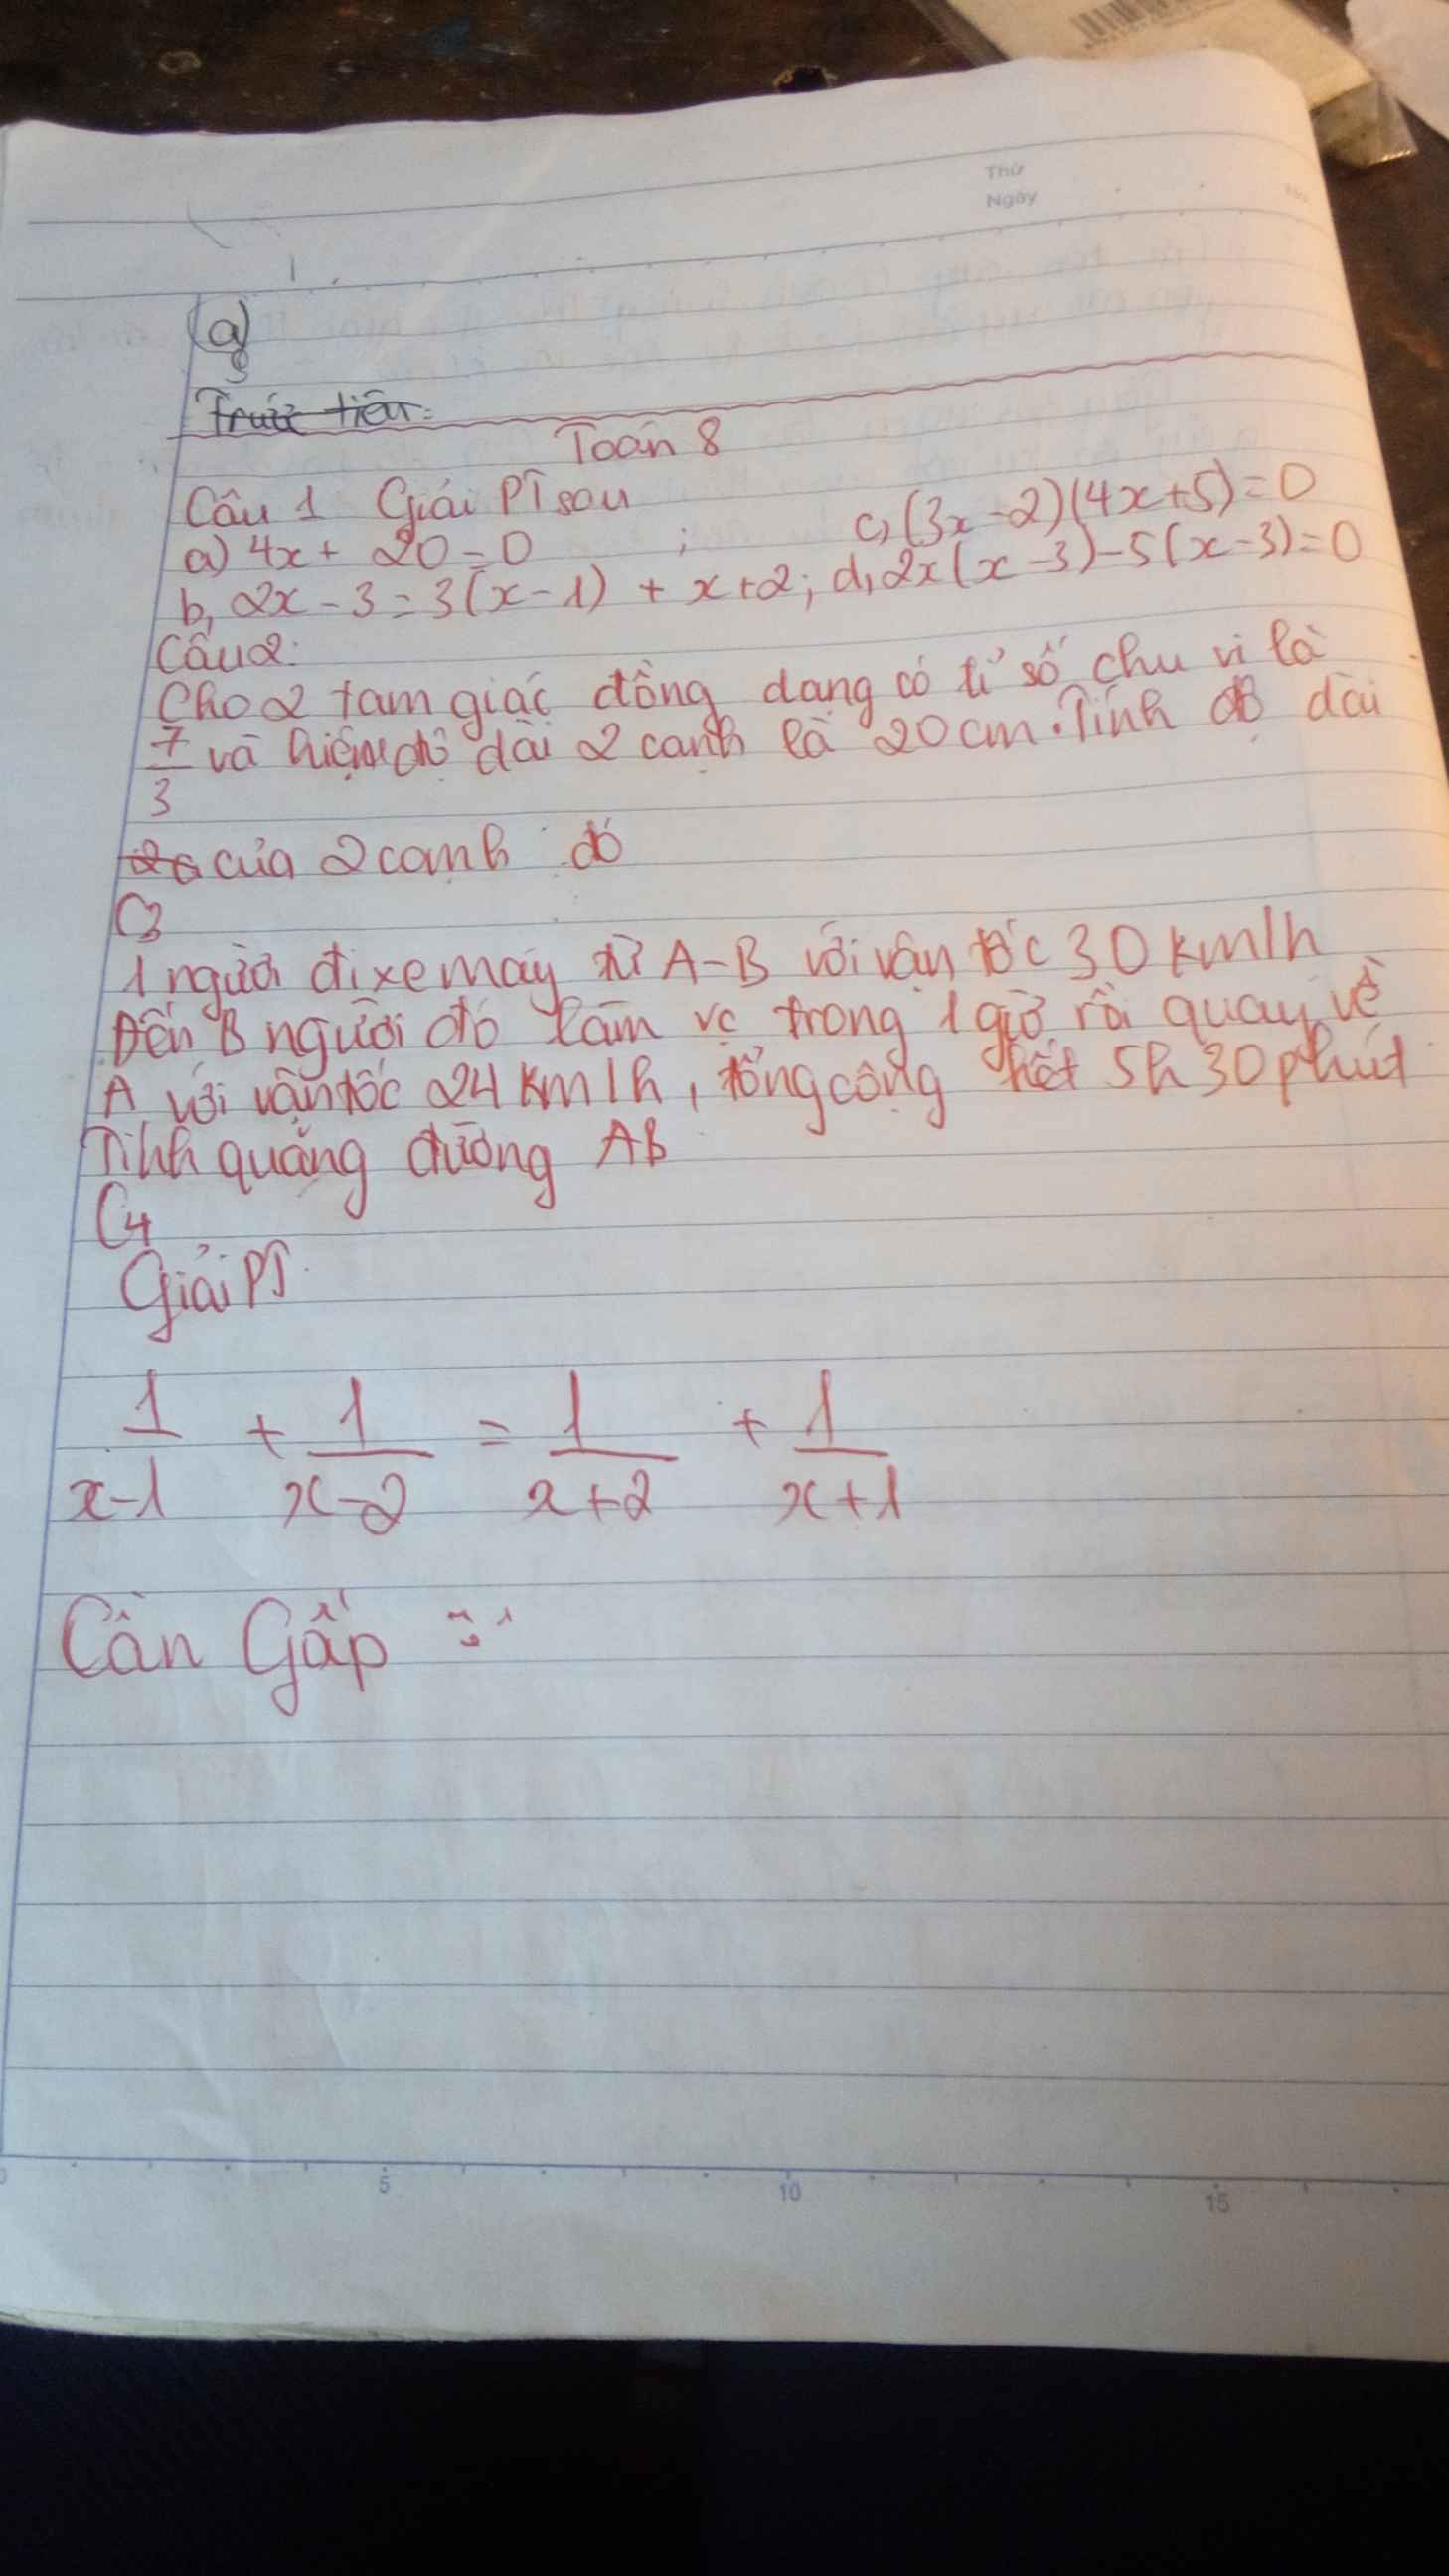 Thứ
Ngày
(a)
Trước tiên:
Toán 8
Câu 1 Giải PT sau
a) 4x + 20 = 0 ; c, (3x - 2)(4x + 5) = 0
b, 2x - 3 = 3(x - 1) + x + 2; d, 2x(x - 3) - 5(x - 3) = 0
Câu 2:
Cho 2 tam giác đồng dạng có tỉ số chu vi là
7/3 và hiệu độ dài 2 cạnh là 20 cm. Tính độ dài
của 2 cạnh đó
C3
1 người đi xe máy từ A-B với vận tốc 30 km/h
Đến B người đó làm vc trong 1 giờ rồi quay về
A với vận tốc 24 km/h, tổng cộng hết 5h 30 phút
Tính quãng đường AB
C4
Giải PT
1/(x-1) + 1/(x-2) = 1/(x+2) + 1/(x+1)
Cần Gấp
5 10 15